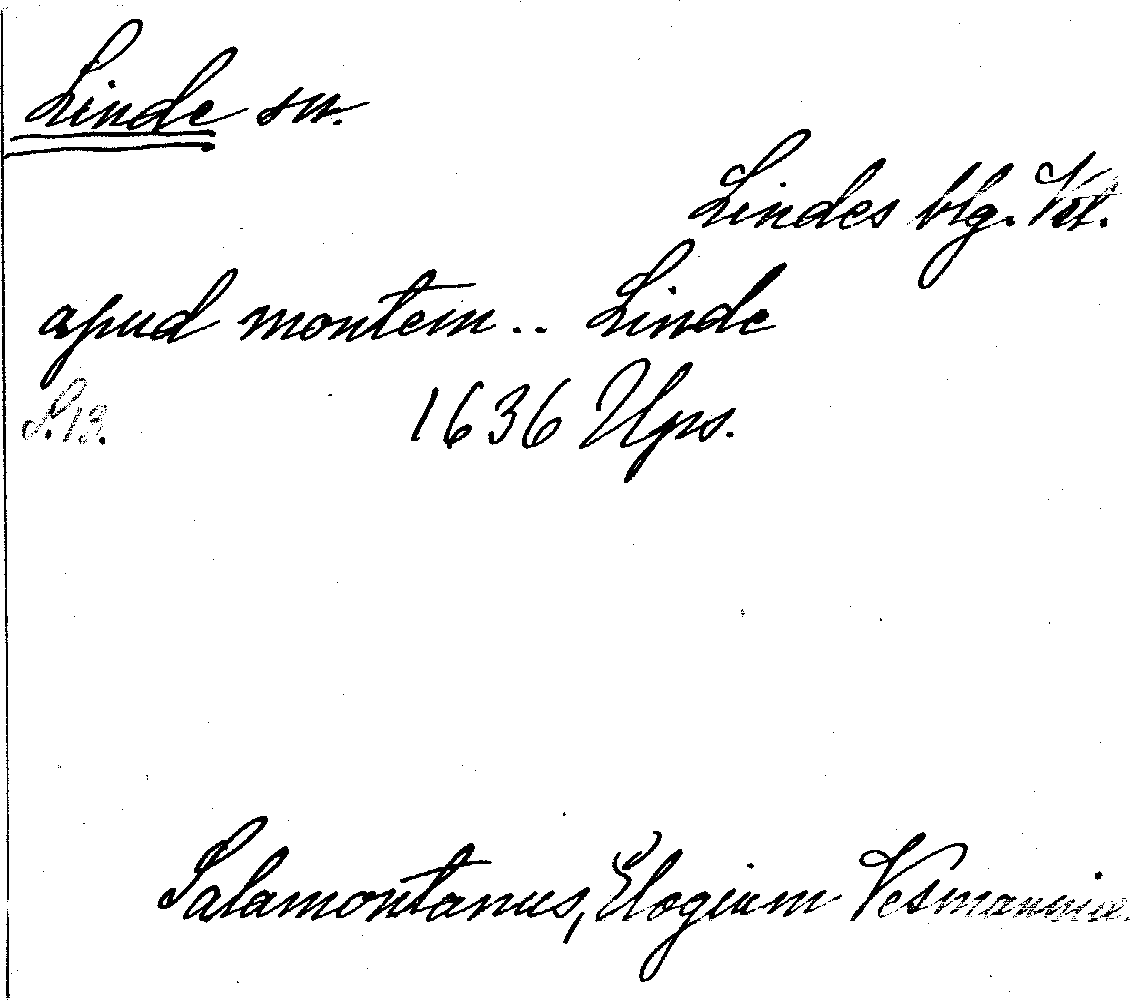 Linde sn.
Lindes blg. Vstl.
apud montem.. Linde
S. 13. 1636 Ups.
Salamontanus, Elogium Vesmanniæ.